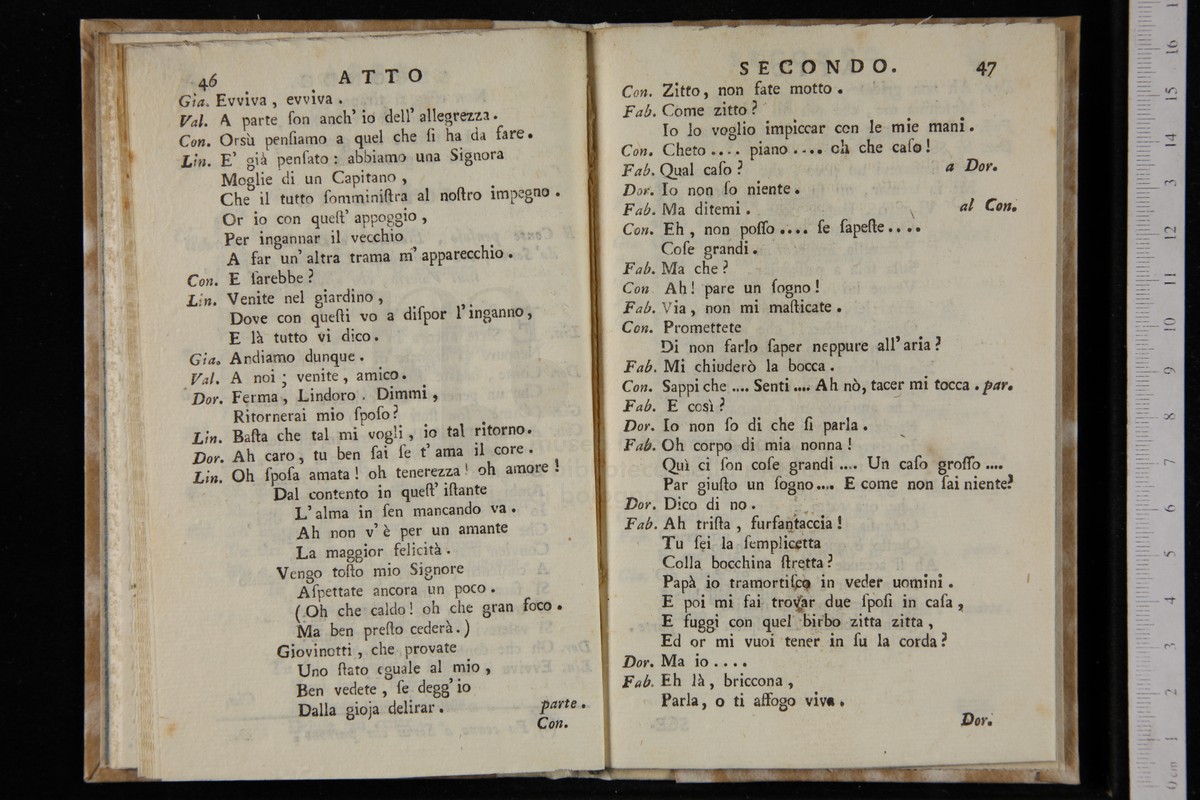 46 ATTO
Gia. Evviva, evviva.
Val. A parte ſon anch' io dell' allegrezza.
Con. Orsù penſiamo a quel che ſi ha da fare.
Lin. E' già penſato: abbiamo una Signora
Moglie di un Capitano,
Che il tutto ſomminiſtra al noſtro impegno.
Or io con queſt' appoggio,
Per ingannar il vecchio
A far un' altra trama m' apparecchio.
Con. E ſarebbe?
Lin. Venite nel giardino,
Dove con queſti vo a diſpor l'inganno,
E là tutto vi dico.
Gia. Andiamo dunque.
Val. A noi; venite, amico.
Dor. Ferma, Lindoro. Dimmi,
Ritornerai mio ſpoſo?
Lin. Baſta che tal mi vogli, io tal ritorno.
Dor. Ah caro, tu ben ſai ſe t' ama il core.
Lin. Oh ſpoſa amata! oh tenerezza! oh amore!
Dal contento in queſt' iſtante
L'alma in ſen mancando va.
Ah non v' è per un amante
La maggior felicità.
Vengo toſto mio Signore
Aſpettate ancora un poco.
(Oh che caldo! oh che gran foco.
Ma ben preſto cederà.)
Giovinotti, che provate
Uno ſtato eguale al mio,
Ben vedete, ſe degg' io
Dalla gioja delirar. parte.
Con.
SECONDO. 47
Con. Zitto, non fate motto.
Fab. Come zitto?
Io lo voglio impiccar con le mie mani.
Con. Cheto.... piano.... oh che caſo!
Fab. Qual caſo? a Dor.
Dor. Io non ſo niente.
Fab. Ma ditemi. al Con.
Con. Eh, non poſſo.... ſe ſapeſte....
Coſe grandi.
Fab. Ma che?
Con Ah! pare un ſogno!
Fab. Via, non mi maſticate.
Con. Promettete
Di non farlo ſaper neppure all'aria?
Fab. Mi chiuderò la bocca.
Con. Sappi che.... Senti.... Ah nò, tacer mi tocca. par.
Fab. E così?
Dor. Io non ſo di che ſi parla.
Fab. Oh corpo di mia nonna!
Quì ci ſon coſe grandi.... Un caſo groſſo....
Par giuſto un ſogno.... E come non ſai niente?
Dor. Dico di no.
Fab. Ah triſta, furfantaccia!
Tu ſei la ſemplicetta
Colla bocchina ſtretta?
Papà io tramortiſco in veder uomini.
E poi mi fai trovar due ſpoſi in caſa,
E fuggi con quel birbo zitta zitta,
Ed or mi vuoi tener in ſu la corda?
Dor. Ma io....
Fab. Eh là, briccona,
Parla, o ti affogo viva.
Dor.